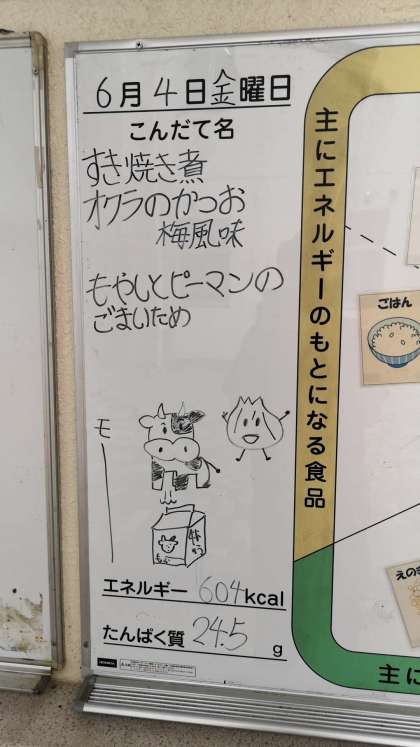 6月4日金曜日
こんだて名
すき焼き煮
オクラのかつお
梅風味
もやしとピーマンの
ごまいため
モー
牛
エネルギー 604kcal
たんぱく質 24.5 g
主にエネルギーのもとになる食品
ごはん
えのき
主に